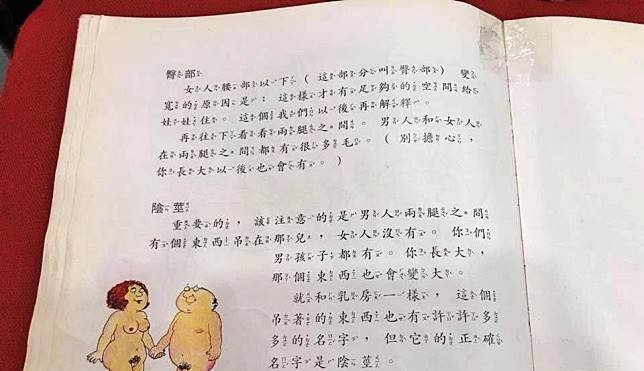 臀部
女人腰部以下(這部分叫臀部)變
寬的原因是:這樣才有足夠的空間給
娃娃住。這個我們以後再解釋。
再往下看看兩腿之間。男人和女人
在兩腿之間都有很多毛。(別擔心,
你長大以後也會有。)
陰莖
重要的,該注意的是男人兩腿之間
有個東西吊在那兒,女人沒有。你們
男孩子都有。你長大,
那個東西也會變大。
就和乳房一樣,這個
吊著的東西也有許許多
多的名字,但它的正確
名字是陰莖。